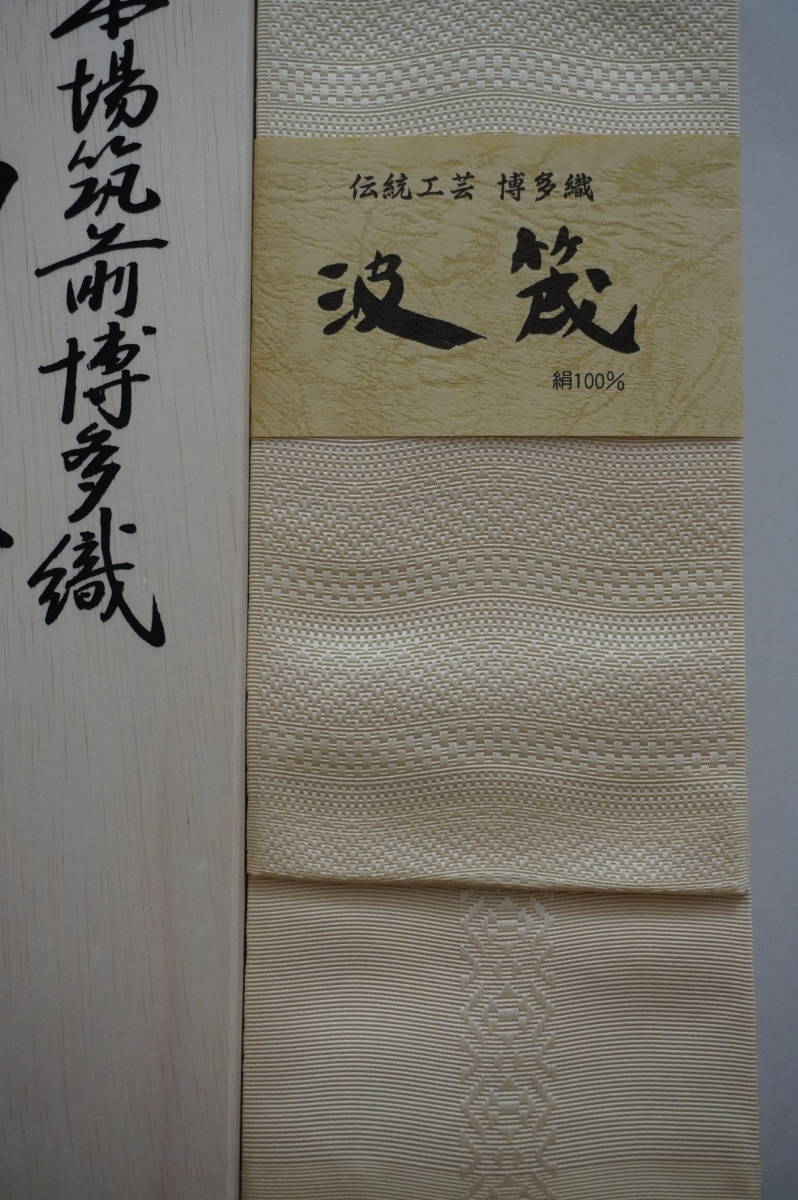 本場筑前博多織
伝統工芸 博多織
波筬
絹100%